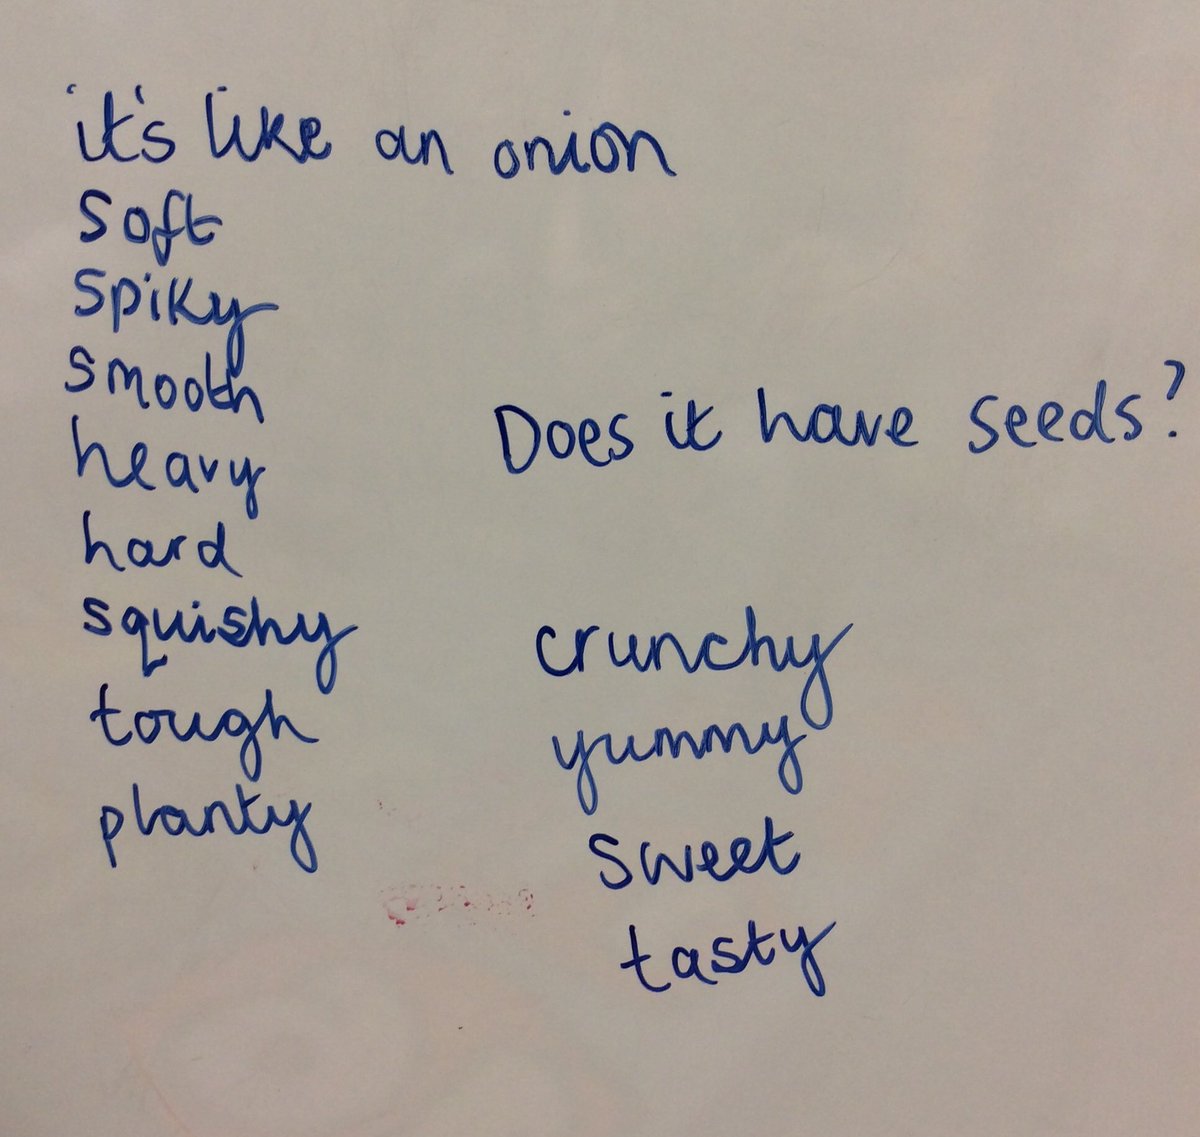 it's like an onion
soft
spiky
smooth
heavy
hard
squishy
tough
planty
Does it have seeds?
crunchy
yummy
sweet
tasty